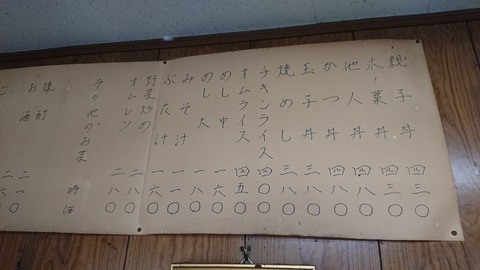 親子丼 四三〇
木ノ葉丼 四三〇
他人丼 四八〇
かつ丼 四八〇
玉子丼 三八〇
焼めし 三八〇
チキンライス 四〇〇
オムライス 四五〇
めし中 一六〇
めし大 一八〇
みそ汁 一一〇
ぶた汁 一六〇
野菜炒め 二八〇
オムレツ 二八〇
その他のお菜 時価
焼酎 二一〇
お酒 二六〇